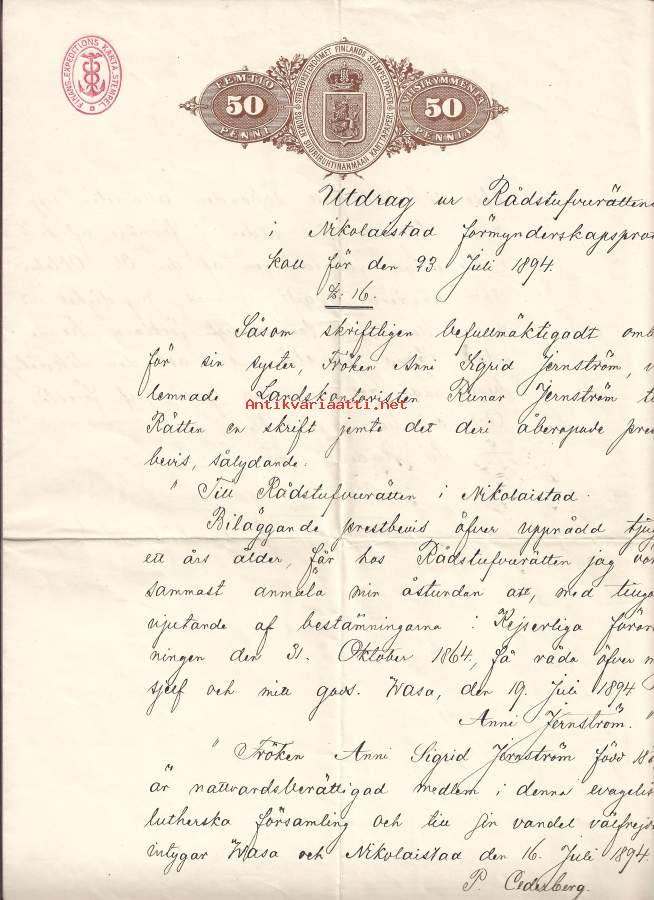 FINANS-EXPEDITIONS KARTA. STEMPEL
STORFURSTENDÖMET FINLANDS STÄMPELPAPPER
SUOMEN SUURIRUHTINANMAAN KARTTAPAPERI
FEMTIO
50
PENNI
VIISIKYMMENTÄ
50
PENNIÄ
Utdrag ur Rådstufvurättens
i Nikolaistad förmynderskapsproto
koll för den 23. Juli 1894.
§: 16.
Såsom skriftligen befullmäktigadt omb
för sin syster, Fröken Anni Sigrid Jernström,
lemnade Landskontoristen Runar Jernström
Rätten en skrift jemte det deri åberopade prest
bevis, sålydande:
"Till Rådstufvurätten i Nikolaistad.
Biläggande prestbevis öfver uppnådd tjugo
ett års ålder, får hos Rådstufvurätten jag vör
sammast anmäla min åstundan att, med tillgo
njutande af bestämningarna i Kejserliga förord
ningen den 31. Oktober 1864, få råda öfver
sjelf och mitt gods. Wasa, den 19. Juli 1894
Anni Jernström."
"Fröken Anni Sigrid Jernström född 18
är nattvardsberättigad medlem i denna evangelis
lutherska församling och till sin vandel välfrejd
intygar Wasa och Nikolaistad den 16. Juli 1894.
P. Cederberg.
Antikvariaatti.net